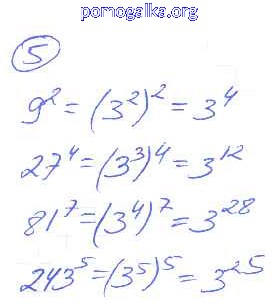 pomogalka.org
5
9² = (3²)² = 3⁴
27⁴ = (3³)⁴ = 3¹²
81⁷ = (3⁴)⁷ = 3²⁸
243⁵ = (3⁵)⁵ = 3²⁵